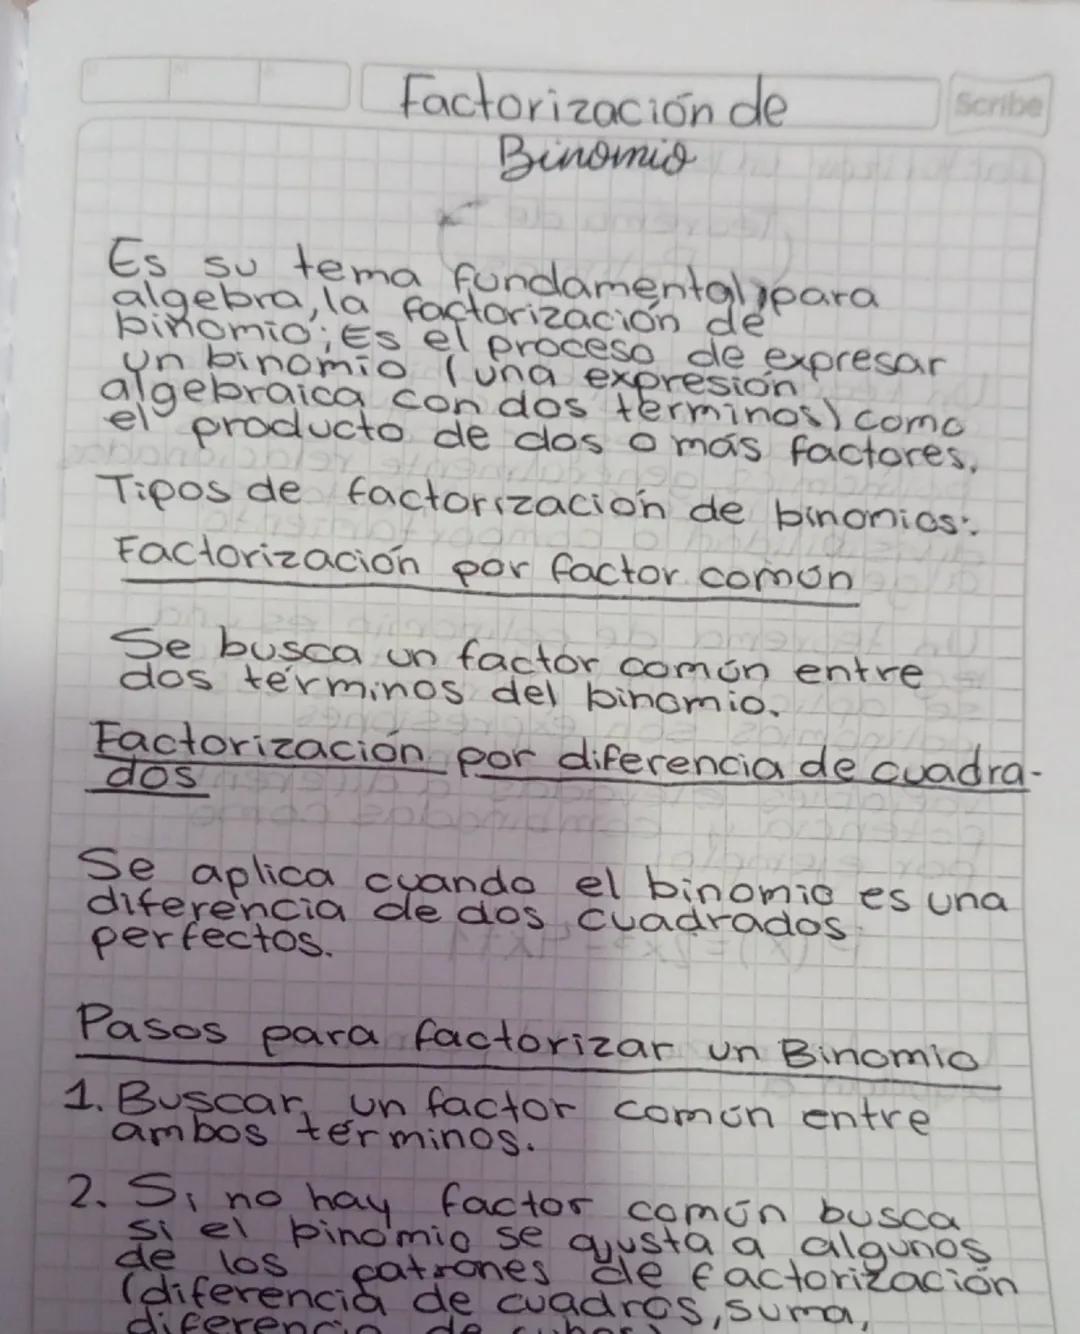 Factorización de
Scribe
Binomio
Es su tema fundamental, para
algebra, la factorización de
binomio; Es el proceso de expresar
un binomio (una expresión
algebraica con dos términos) como
el producto de dos o más factores.
Tipos de factorización de binomios:
Factorización por factor común
Se busca un factor común entre
dos términos del binomio.
Factorización por diferencia de cuadra-
dos
Se aplica cuando el binomio es una
diferencia de dos cuadrados
perfectos.
Pasos para factorizar un Binomio
1. Buscar un factor común entre
ambos términos.
2. Si no hay factor común busca
si el binomio se ajusta a algunos
de los patrones de factorización
(diferencia de cuadros, suma,
diferencia de cubos)